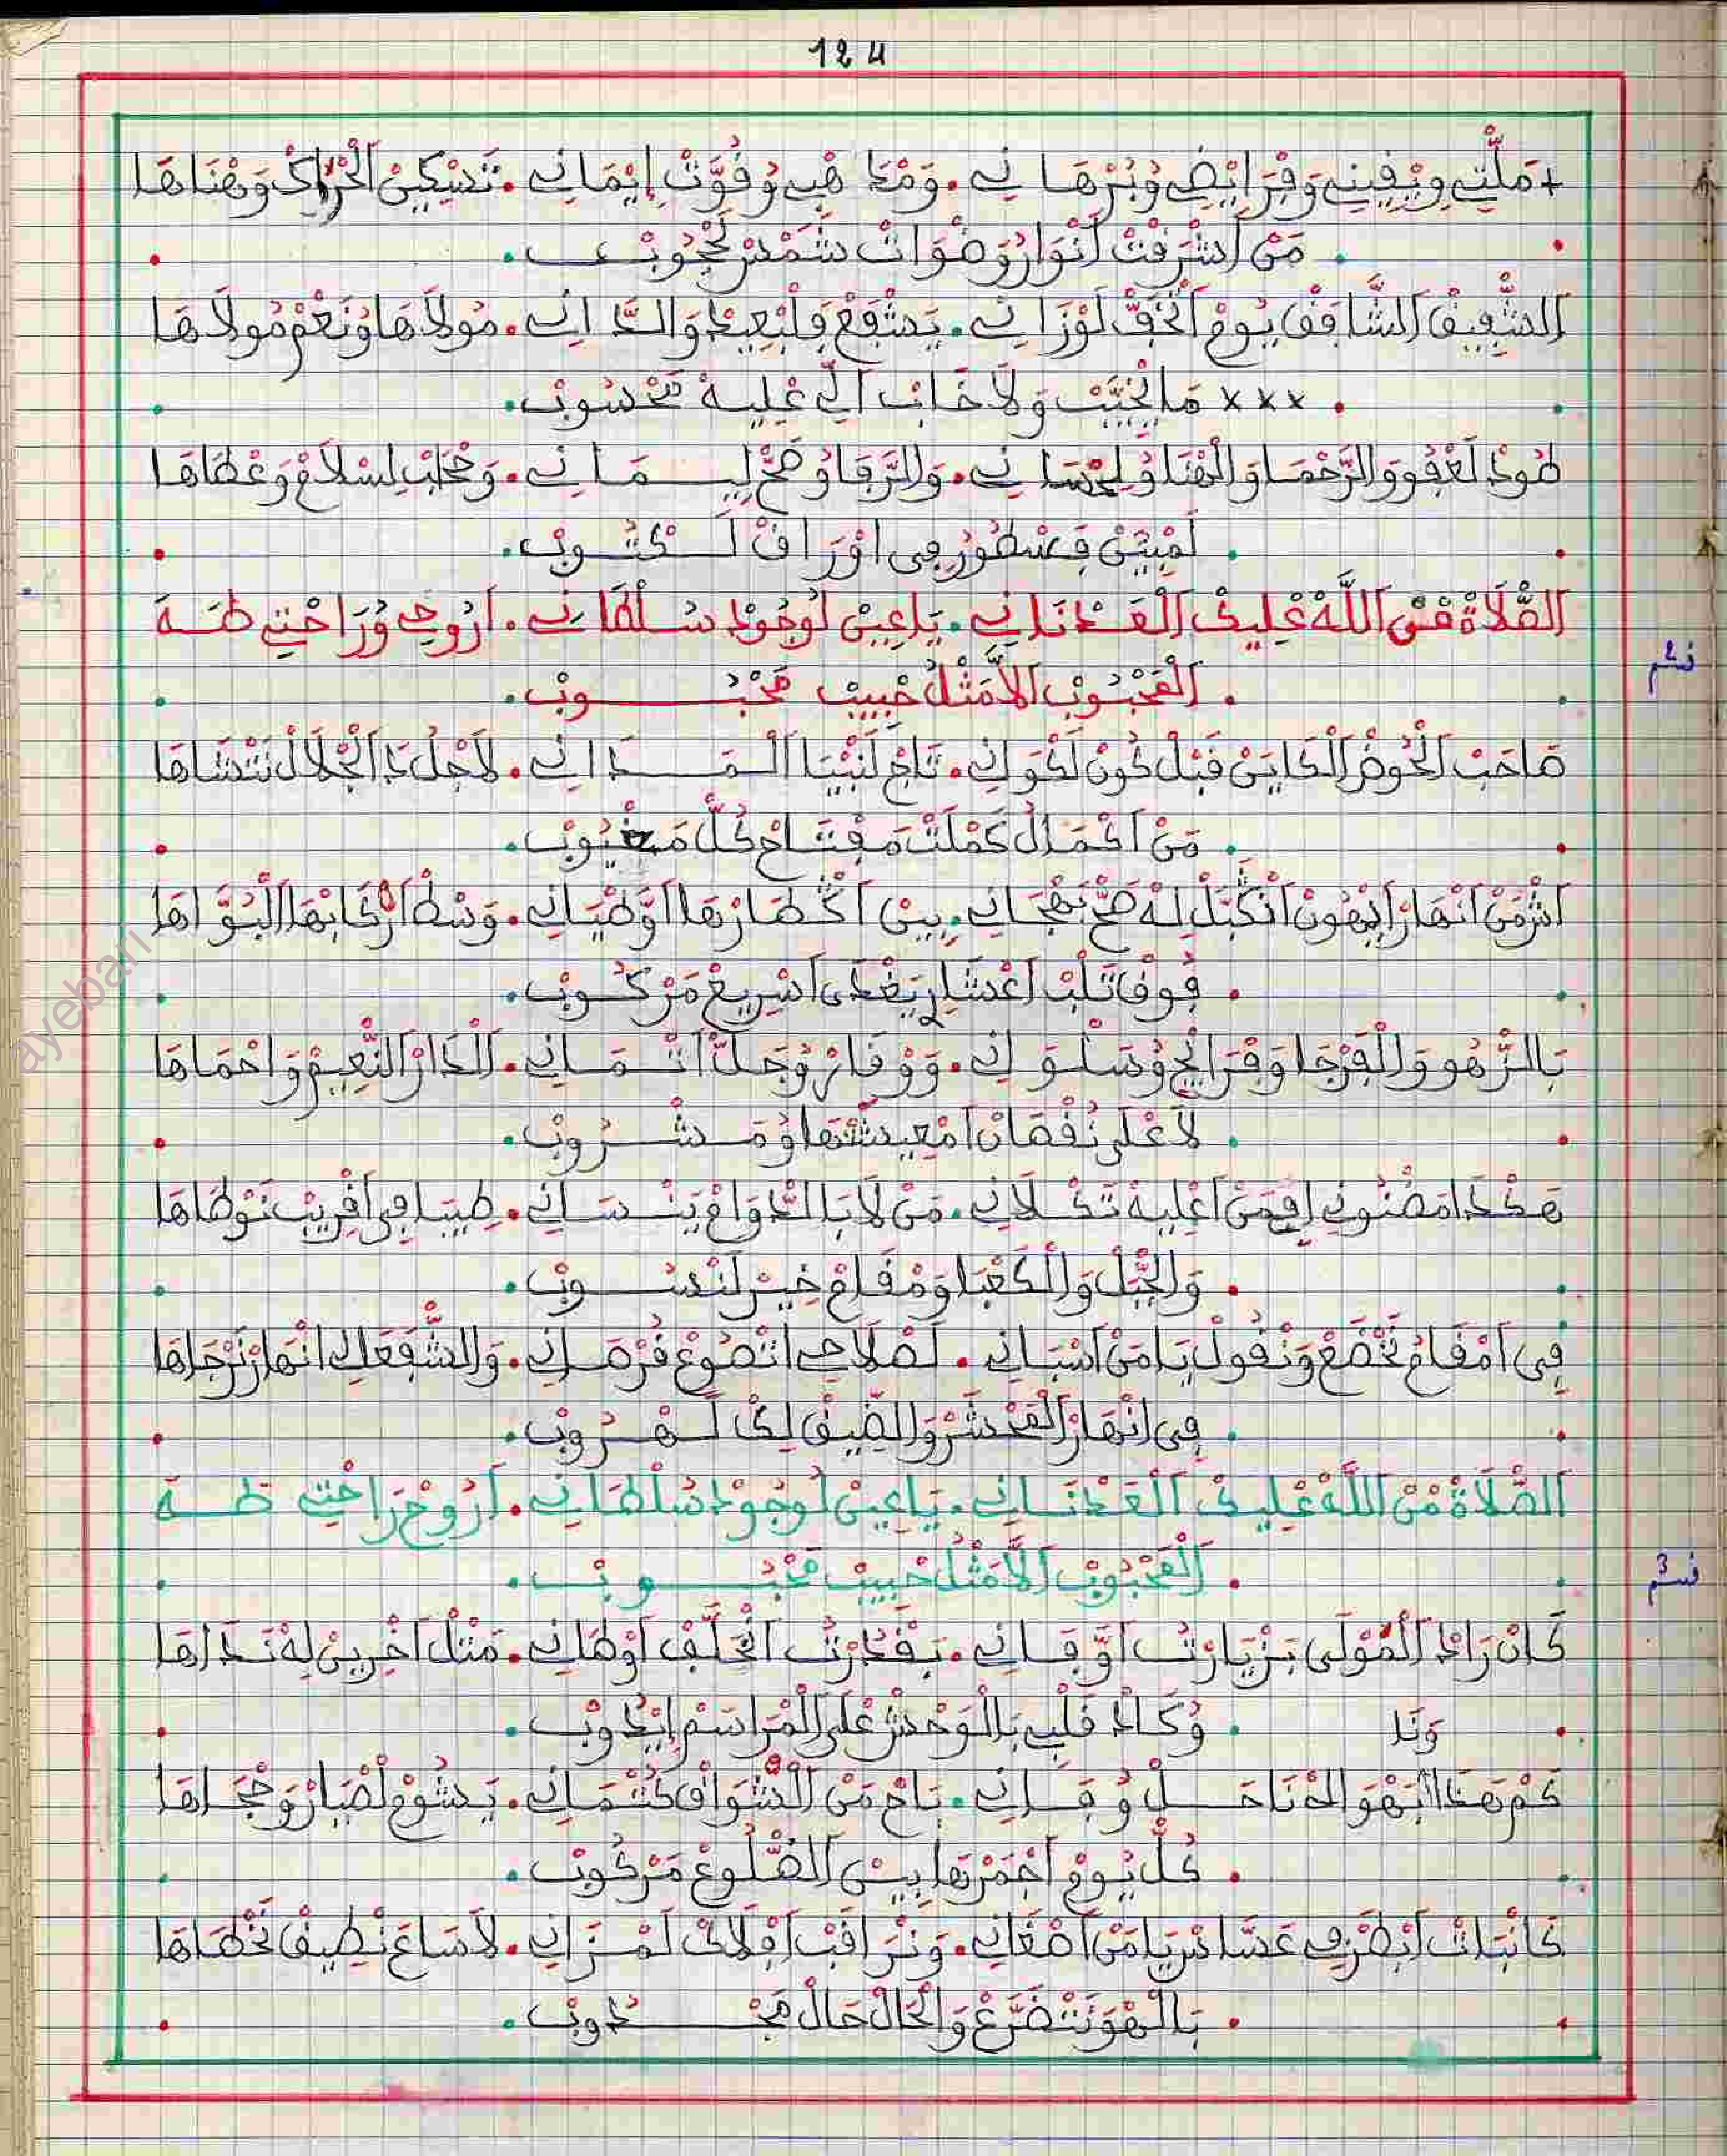 124
+ مَلّتِي وِيْقِينِي وَفْرَايْضِي وُبُرْهَانِي . وَمْدَاهْبِي وُقُوّتْ إِيْمَانِي . تَسْكِينْ الْحْرَاكْ وَهْنَاهَا
. مَنْ اَشْرَقْتْ اَنْوَارُ وَضْوَاتْ شَمْسْ لَحْجُوبْ .
الشّفِيقْ الشَّافَقْ يُومْ اتْخَفّ لَوْزَانِي . يَشْفَعْ فَلْبْعِيدْ وَالدَّانِي . مُولاَهَا وُنَعْمْ مُولاَهَا
. xxx مَا يْخَيّبْ وَلاَ خَابْ الِّي عْلِيهْ مَحْسُوبْ .
طُودْ لَعْفُو وَالرَّحْمَا وَالْهْنَا وُلِحْسَانِي . وَالرّفَا وُصَحّ لِيمَانِي . وَحْجَابْ لِسْلاَمْ وَغْطَاهَا
. لَمْبَيَّنْ فَسْطُورْ فِي اوْرَاقْ لَكْتُوبْ .
الصّْلاَةْ مْنْ اللَّهْ عْلِيكْ الْعَدْنَانِي . يَاعِينْ لُوجُودْ سُلْطَانِي . اَرُوحِي وْرَاحْتِي طَهَ
. الْمَحْبُوبْ الاَّ مَثْلُ حْبِيبْ مَحْبُوبْ .
قسم 2
صَاحَبْ الْحُوضْ الْكَايَنْ قَبْلْ كُونْ لَكْوَانِي . تَاجْ لَنْبْيَا الْمَدَانِي . لاَجْلُ دَا الْجْلاَلْ نَنْشَاهَا
. مَنْ اكْمَالُ كَمْلَتْ مَفْتَاحْ كُلّ مَغْيُوبْ .
اشْ مَنْ انْهَارْ ايْهُونْ انْكَبَّلْ لِهْ صَحّ نَهْجَانِي . بِينْ اكْطَارْهَا اوّطْيَانِي . وَسْطْ ارْكَابْهَا الْبُوَّاهَا
. فُوقْ تَلْبْ اعْشَارِي يَغْدَى اسْرِيعْ مَرْكُوبْ .
بَالزّهُو وَالْفَرْجَا وَفْرَايْحِي وُسَلْوَانِي . وَوْقَارْ وُجَلّ اثْمَانِي . لَلْدَارْ النّعِيمْ وَاحْمَاهَا
. لاَ عْلَى نُقْصَانْ امْعِيشْتهَا وُمَشْرُوبْ .
هَكْدَا مَضْنُونِي افْمَنْ اعْلِيهْ تَكْلاَنِي . مَنْ لاَ بَالدْوَامْ يَنْسَانِي . طِيبَا فِي اقْرِيبْ نَوْطَاهَا
. وَالْجْبَلْ وَالْكَعْبَا وَمْقَامْ خِيرْ لَنْسُوبْ .
فِي امْقَامُ نَخْضَعْ وَنْقُولْ يَامَنْ اسْبَانِي . لَصْلاَحِي اتْصُوعْ فُرْصَانِي . وَالشّفَعَا لِي انْهَارْ نَرْجَاهَا
. فِي انْهَارْ الْمَحْشَرْ وَالضِّيقْ لِكْ لَهْرُوبْ .
الصّْلاَةْ مْنْ اللَّهْ عْلِيكْ الْعَدْنَانِي . يَاعِينْ لُوجُودْ سُلْطَانِي . اَرُوحْ رَاحْتِي طَهَ
. الْمَحْبُوبْ الاَّ مَثْلُ حْبِيبْ مَحْبُوبْ .
قسم 3
كَانْ رَادْ الْمُوْلَى بَزْيَارْتُ اوَّفَانِي . بَقْدَرْتُ انْخَلَّفْ اوْطَانِي . مَثْلْ اخْرِينْ لِهْ نَدَاهَا
وَنَا . وُكَادْ قَلْبِي بَالْوَحْشْ عْلَى الْمْرَاسَمْ إيْدُوبْ .
كَمْ هَدَا ابْهْوَالهْ نَاحَلْ وُفَانِي . بَاحْ مَنْ الشّْوَاقْ كُتْمَانِي . يَشُومْ لَصْبَارْ وَحْجَاهَا
. كُلّ يُومْ اجْمَرْهَا بِينْ الضّْلُوعْ مَرْكُوبْ .
كَانْبَاتْ ابْطَرْفِي عَسَّاسْ يَامَنْ اصْغَانِي . وَنْرَاقَبْ افْلاَكْ لَمْزَانِي . لاَسَاعَ نْطِيقْ نَخْطَاهَا
. بَالْهْوَ نَتْضَرَّعْ وَالْحَالْ حَالْ مَجْدُوبْ .